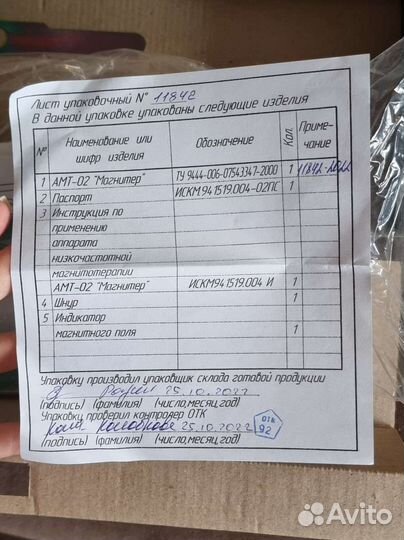 Лист упаковочный № 11842
В данной упаковке упакованы следующие изделия
№ Наименование или шифр изделия Обозначение Кол. Приме-чание
1 АМТ-02 "Магнитер" ТУ 9444-006-07543347-2000 1 11842-2022
2 Паспорт ИСКМ.941519.004-02ПС 1
3 Инструкция по
применению
аппарата
низкочастотной
магнитотерапии
АМТ-02 "Магнитер" ИСКМ941519.004 И 1
4 Шнур 1
5 Индикатор
магнитного поля 1
Упаковку производил упаковщик склада готовой продукции
25.10.2022
(подпись) (фамилия) (число,месяц,год)
Упаковку проверил контролер ОТК
25.10.2022
ОТК
92
(подпись) (фамилия) (число,месяц,год)
Avito